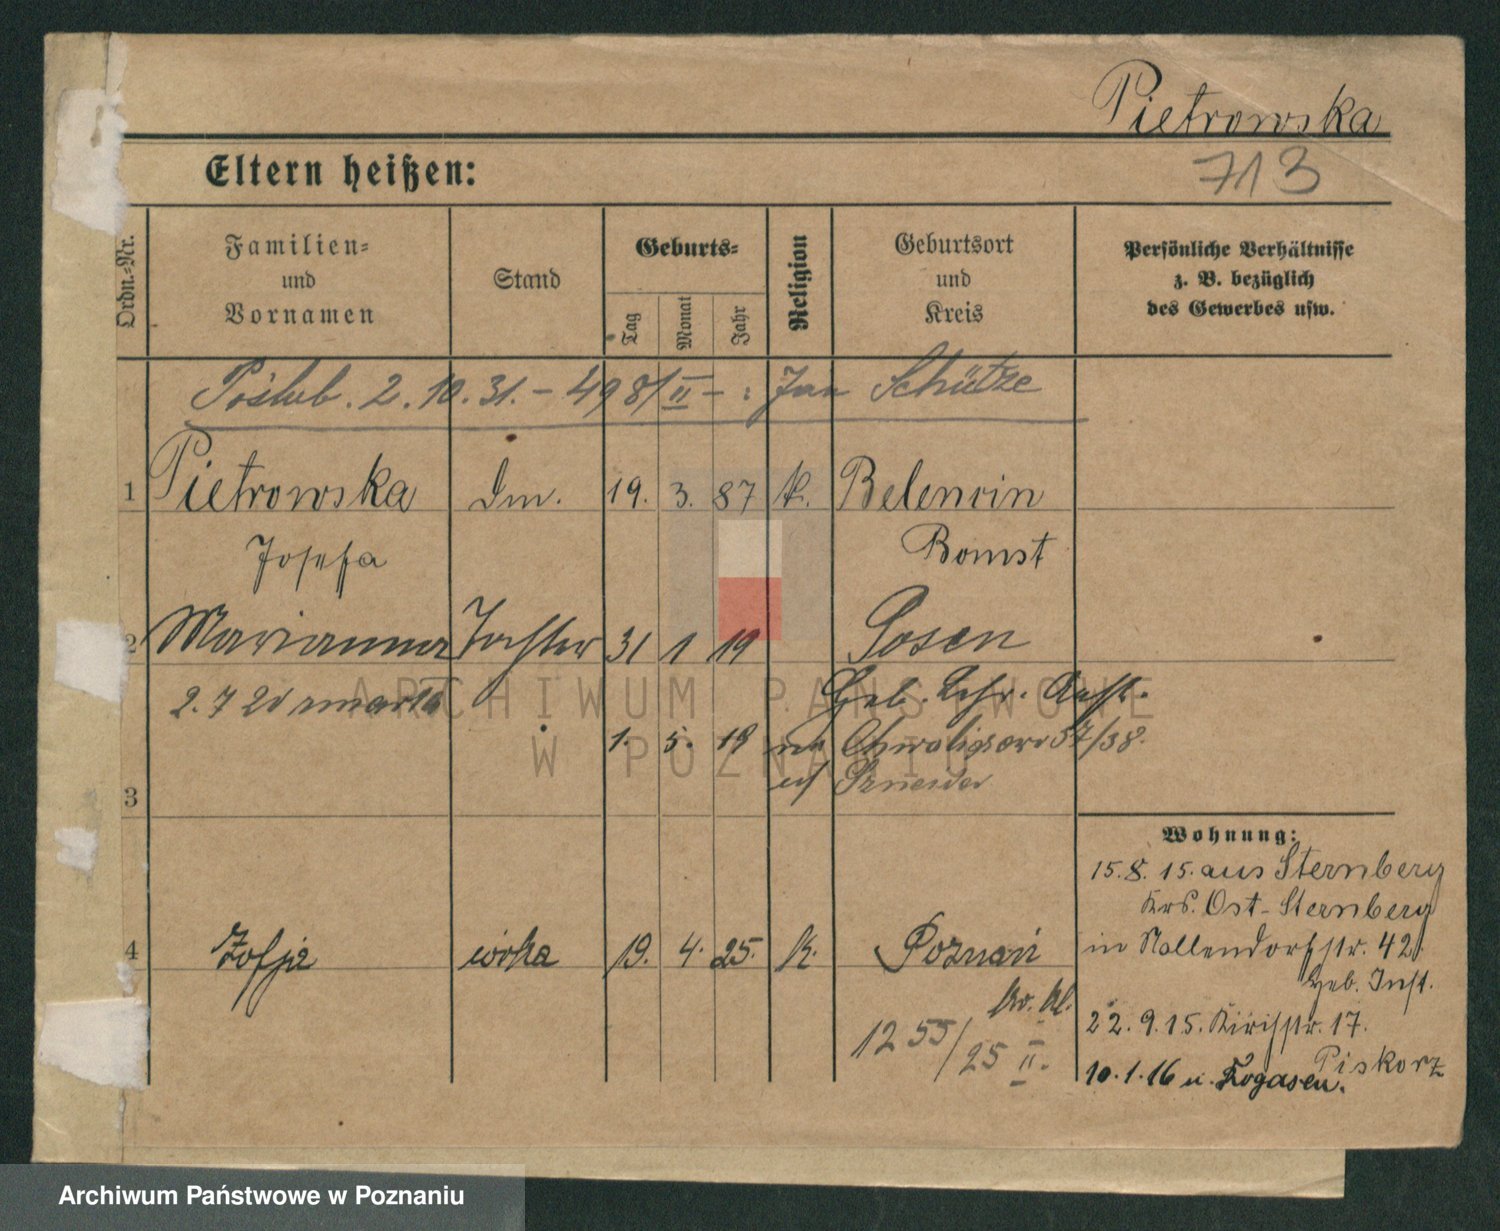 Pietrowska
713
Eltern heißen:
Ordn.-Nr.
Familien-
und
Vornamen
Stand
Geburts-
Tag
Monat
Jahr
Religion
Geburtsort
und
Kreis
Persönliche Verhältnisse
z. B. bezüglich
des Gewerbes usw.
Poślub. 2.10.31. - 498/II - : Jan Schütze
1 Pietrowska Dm. 19. 3. 87 k. Belencin
Josefa Bomst
2 Marianna Tochter 31 1 19 Posen
2. 7 21 zmarła Geb. Lehr. Anst.
1. 5. 19 na Chwaliszewo 37/38.
Szneider
3
4 Zofja córka 19. 4. 25. k. Poznań
kr. kl.
1255/25 II.
Wohnung:
15.8.15. aus Sternberg
Krs. Ost-Sternberg
in Nollendorfstr. 42
Heb. Inst.
22.9.15. Kirchstr. 17.
Piskorz
10.1.16 n. Rogasen.
ARCHIWUM PAŃSTWOWE
W POZNANIU
Archiwum Państwowe w Poznaniu